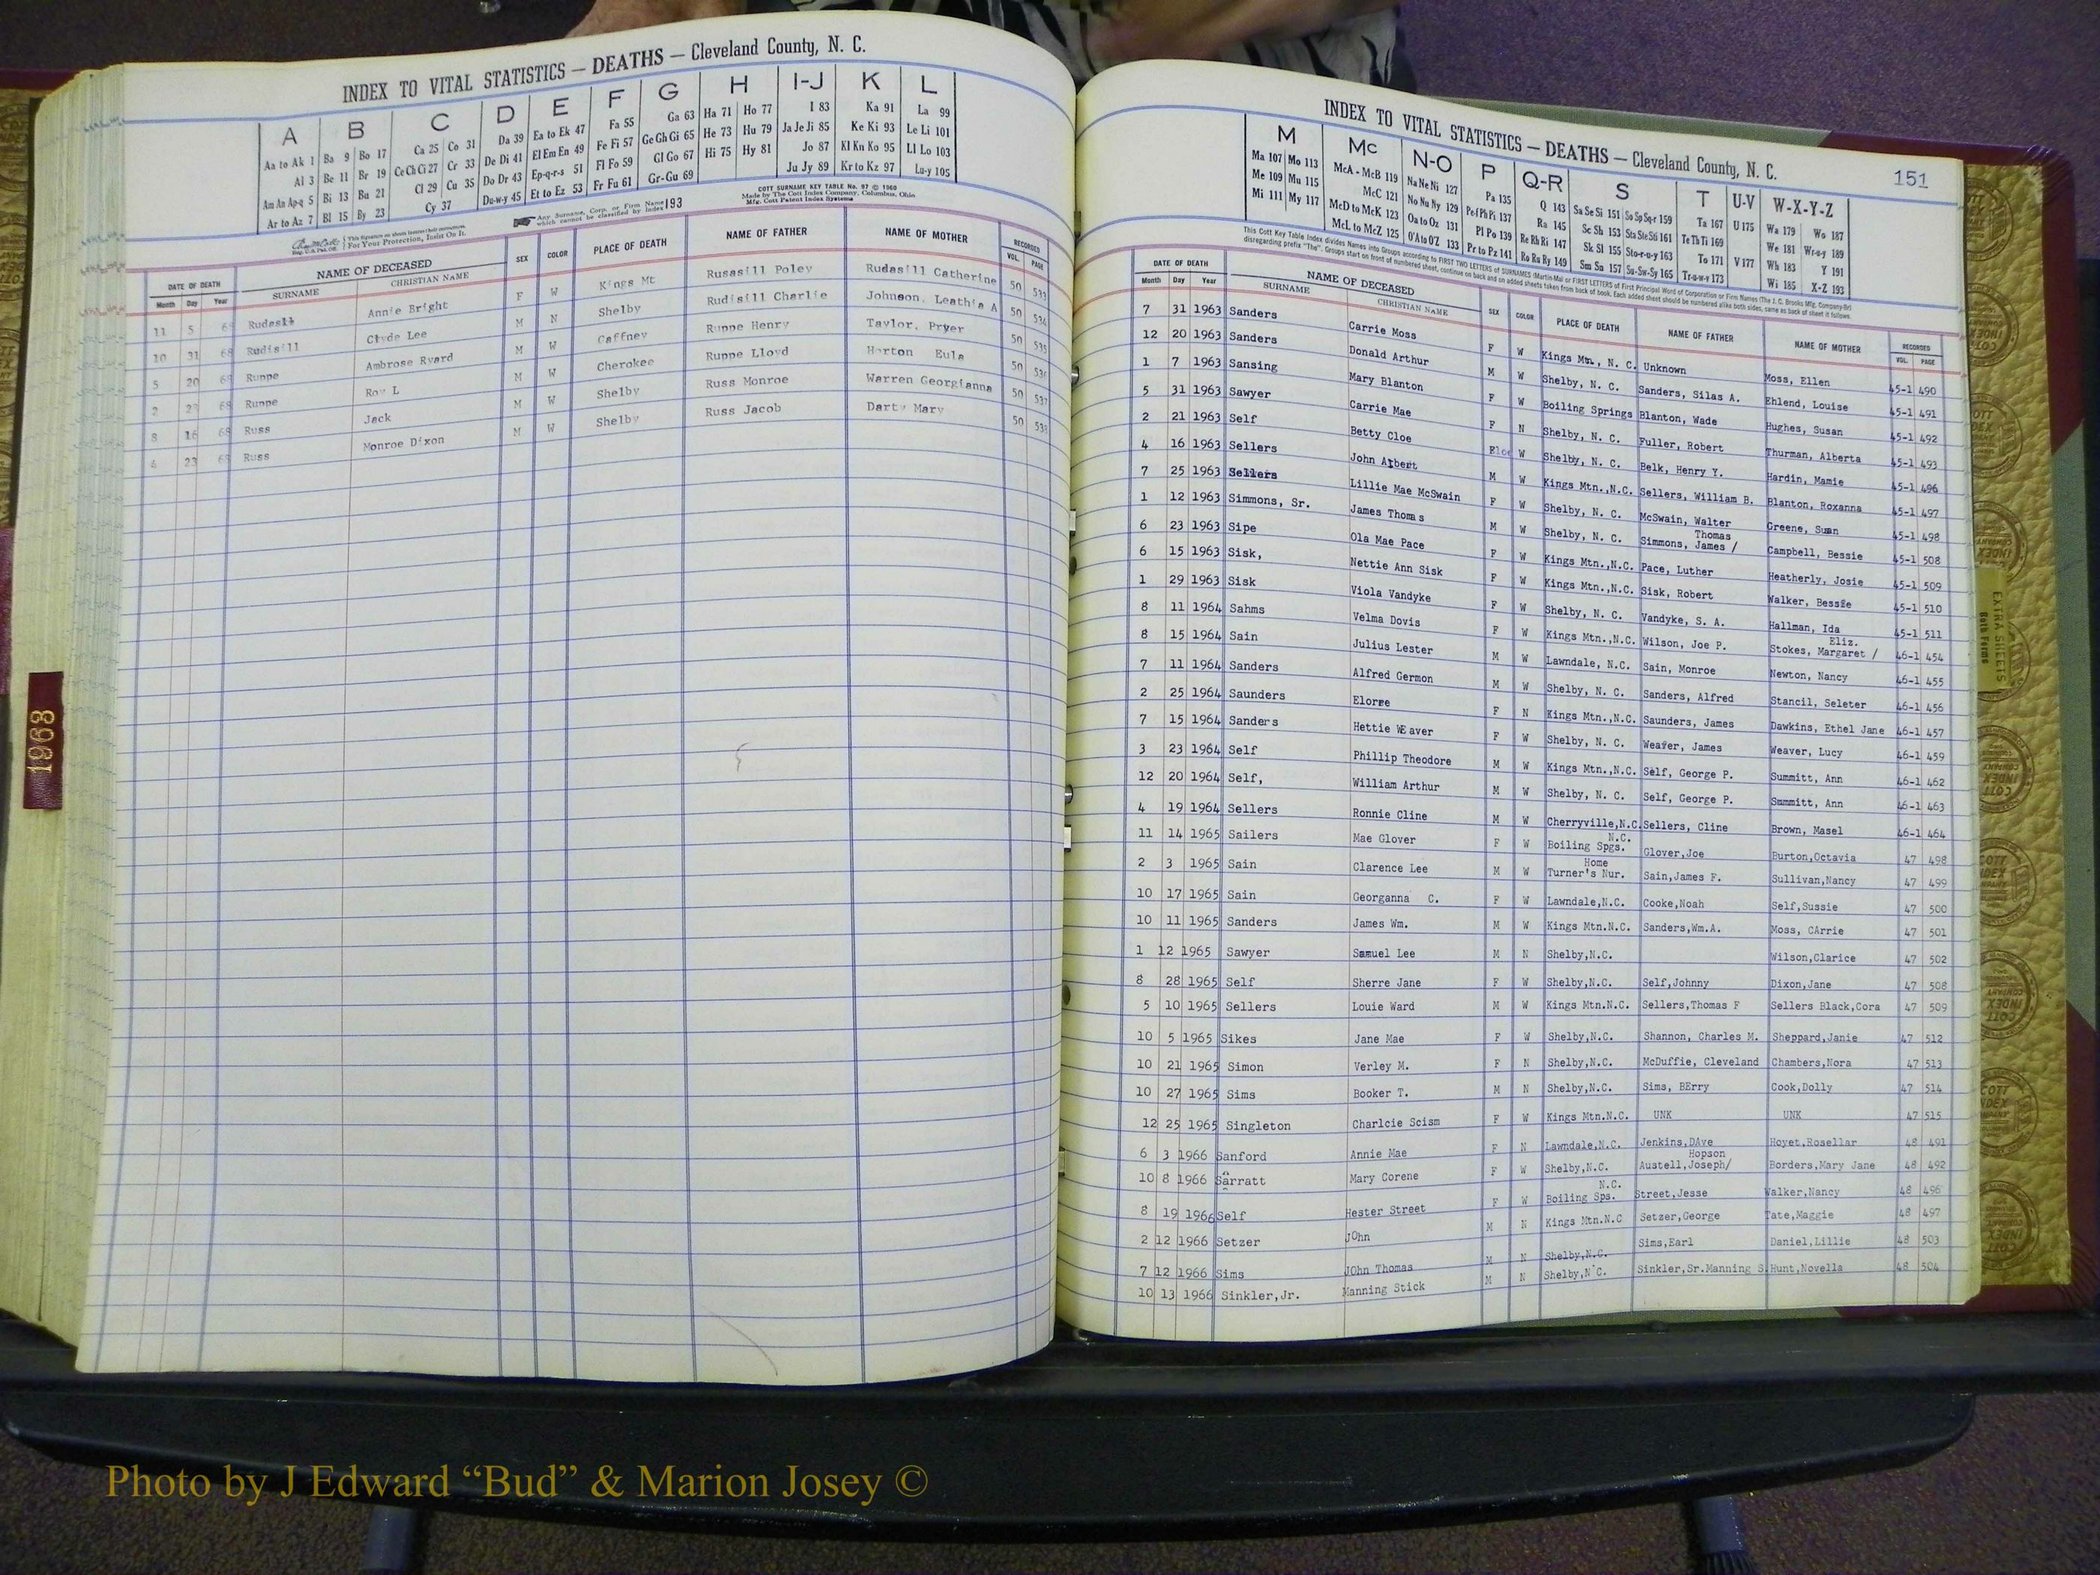 INDEX TO VITAL STATISTICS — DEATHS — Cleveland County, N. C.
A B C D E F G H I-J K L
Aa to Ak 1 Ba 9 Bo 17 Ca 25 Co 31 Da 39 Ea to Ek 47 Fa 55 Ga 63 Ha 71 Ho 77 I 83 Ka 91 La 99
Al 3 Be 11 Br 19 Ce Ch Ci 27 Cr 33 De Di 41 El Em En 49 Fe Fi 57 Ge Gh Gi 65 He 73 Hu 79 Ja Je Ji 85 Ke Ki 93 Le Li 101
Am An Ap-q 5 Bi 13 Bu 21 Cl 29 Cu 35 Do Dr 43 Ep-q-r-s 51 Fl Fo 59 Gl Go 67 Hi 75 Hy 81 Jo 87 Kl Kn Ko 95 Ll Lo 103
Ar to Az 7 Bl 15 By 23 Cy 37 Du-w-y 45 Et to Ez 53 Fr Fu 61 Gr-Gu 69 Ju Jy 89 Kr to Kz 97 Lu-y 105
COTT SURNAME KEY TABLE No. 97 © 1960
Made by The Cott Index Company, Columbus, Ohio
Mfg. Cott Patent Index Systems
Any Surname, Corp. or Firm Name which cannot be classified by index 193
For Your Protection, Insist On It.
DATE OF DEATH NAME OF DECEASED SEX COLOR PLACE OF DEATH NAME OF FATHER NAME OF MOTHER RECORDED
Month Day Year SURNAME CHRISTIAN NAME VOL. PAGE
11 5 68 Rudasil Annie Bright F W Kings Mt Rusasill Poley Rudasill Catherine 50 533
10 31 68 Rudisill Clyde Lee M N Shelby Rudisill Charlie Johnson, Leathia A 50 534
5 20 68 Ruppe Ambrose Ryard M W Gaffney Ruppe Henry Taylor, Pryer 50 535
2 23 68 Ruppe Roy L M W Cherokee Ruppe Lloyd Horton Eula 50 536
8 16 68 Russ Jack M W Shelby Russ Monroe Warren Georgianna 50 537
4 23 68 Russ Monroe Dixon M W Shelby Russ Jacob Darty Mary 50 538
1968
INDEX TO VITAL STATISTICS — DEATHS — Cleveland County, N. C. 151
M Mc N-O P Q-R S T U-V W-X-Y-Z
Ma 107 Mo 113 McA - McB 119 Na Ne Ni 127 Pa 135 Q 143 Sa Se Si 151 So Sp Sq-r 159 Ta 167 U 175 Wa 179 Wo 187
Me 109 Mu 115 McC 121 No Nu Ny 129 Pe-f Ph Pi 137 Ra 145 Sc Sh 153 Sta Ste Sti 161 Te Th Ti 169 We 181 Wr-u-y 189
Mi 111 My 117 McD to McK 123 Oa to Oz 131 Pl Po 139 Re Rh Ri 147 Sk Sl 155 Sto-r-u-y 163 To 171 V 177 Wh 183 Y 191
McL to McZ 125 O'A to O'Z 133 Pr to Pz 141 Ro Ru Ry 149 Sm Sn 157 Su-Sw-Sy 165 Tr-u-w-y 173 Wi 185 X-Z 193
This Cott Key Table Index divides Names into Groups according to FIRST TWO LETTERS of SURNAMES (Martin-Ma) or FIRST LETTERS of First Principal Word of Corporation or Firm Names (The J. C. Brooks Mfg. Company-Br)
disregarding prefix "The". Groups start on front of numbered sheet, continue on back and on added sheets taken from back of book. Each added sheet should be numbered alike both sides, same as back of sheet it follows.
DATE OF DEATH NAME OF DECEASED SEX COLOR PLACE OF DEATH NAME OF FATHER NAME OF MOTHER RECORDED
Month Day Year SURNAME CHRISTIAN NAME VOL. PAGE
7 31 1963 Sanders Carrie Moss F W Kings Mtn., N. C. Unknown Moss, Ellen 45-1 490
12 20 1963 Sanders Donald Arthur M W Shelby, N. C. Sanders, Silas A. Ehlend, Louise 45-1 491
1 7 1963 Sansing Mary Blanton F W Boiling Springs Blanton, Wade Hughes, Susan 45-1 492
5 31 1963 Sawyer Carrie Mae F N Shelby, N. C. Fuller, Robert Thurman, Alberta 45-1 493
2 21 1963 Self Betty Cloe W Shelby, N. C. Belk, Henry Y. Hardin, Mamie 45-1 496
4 16 1963 Sellers John Albert M W Kings Mtn.,N.C. Sellers, William B. Blanton, Roxanna 45-1 497
7 25 1963 Sellers Lillie Mae McSwain F W Shelby, N. C. McSwain, Walter Greene, Susan 45-1 498
1 12 1963 Simmons, Sr. James Thomas M W Shelby, N. C. Simmons, James / Thomas Campbell, Bessie 45-1 508
6 23 1963 Sipe Ola Mae Pace F W Kings Mtn.,N.C. Pace, Luther Heatherly, Josie 45-1 509
6 15 1963 Sisk, Nettie Ann Sisk F W Kings Mtn.,N.C. Sisk, Robert Walker, Bessie 45-1 510
1 29 1963 Sisk Viola Vandyke F W Shelby, N. C. Vandyke, S. A. Hallman, Ida 45-1 511
8 11 1964 Sahms Velma Dovis F W Kings Mtn.,N.C. Wilson, Joe P. Stokes, Margaret / Eliz. 46-1 454
8 15 1964 Sain Julius Lester M W Lawndale, N.C. Sain, Monroe Newton, Nancy 46-1 455
7 11 1964 Sanders Alfred Germon M W Shelby, N. C. Sanders, Alfred Stancil, Seleter 46-1 456
2 25 1964 Saunders Elorse F N Kings Mtn.,N.C. Saunders, James Dawkins, Ethel Jane 46-1 457
7 15 1964 Sanders Hettie WEaver F W Shelby, N. C. Weafer, James Weaver, Lucy 46-1 459
3 23 1964 Self Phillip Theodore M W Kings Mtn.,N.C. Self, George P. Summitt, Ann 46-1 462
12 20 1964 Self, William Arthur M W Shelby, N. C. Self, George P. Summitt, Ann 46-1 463
4 19 1964 Sellers Ronnie Cline M W Cherryville,N.C. Sellers, Cline Brown, Masel 46-1 464
11 14 1965 Sailers Mae Glover F W Boiling Spgs. N.C. Glover,Joe Burton,Octavia 47 498
2 3 1965 Sain Clarence Lee M W Turner's Nur. Home Sain,James F. Sullivan,Nancy 47 499
10 17 1965 Sain Georganna C. F W Lawndale,N.C. Cooke,Noah Self,Sussie 47 500
10 11 1965 Sanders James Wm. M W Kings Mtn.N.C. Sanders,Wm.A. Moss, CArrie 47 501
1 12 1965 Sawyer Samuel Lee M N Shelby,N.C. Wilson,Clarice 47 502
8 28 1965 Self Sherre Jane F W Shelby,N.C. Self,Johnny Dixon,Jane 47 508
5 10 1965 Sellers Louie Ward M W Kings Mtn.N.C. Sellers,Thomas F Sellers Black,Cora 47 509
10 5 1965 Sikes Jane Mae F W Shelby,N.C. Shannon, Charles M. Sheppard,Janie 47 512
10 21 1965 Simon Verley M. F N Shelby,N.C. McDuffie, Cleveland Chambers,Nora 47 513
10 27 1965 Sims Booker T. M N Shelby,N.C. Sims, BErry Cook,Dolly 47 514
12 25 1965 Singleton Charlcie Scism F W Kings Mtn.N.C. UNK UNK 47 515
6 3 1966 Sanford Annie Mae F N Lawndale,N.C. Jenkins,DAve Hoyet,Rosellar 48 491
10 8 1966 Sarratt Mary Corene F W Shelby,N.C. Austell,Joseph/ Hopson Borders,Mary Jane 48 492
8 19 1966 Self Hester Street F W Boiling Sps. N.C. Street,Jesse Walker,Nancy 48 496
2 12 1966 Setzer JOhn M N Kings Mtn.N.C Setzer,George Tate,Maggie 48 497
7 12 1966 Sims JOhn Thomas M N Shelby,N.C. Sims,Earl Daniel,Lillie 48 503
10 13 1966 Sinkler,Jr. Manning Stick M N Shelby,N.C. Sinkler,Sr.Manning S. Hunt,Novella 48 504
EXTRA SHEETS
Both Forms
Photo by J Edward “Bud” & Marion Josey ©